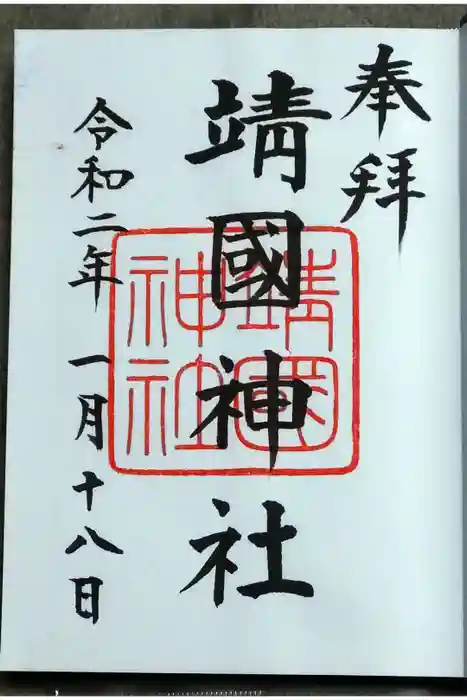 奉拝
靖國神社
靖國
神社
令和二年一月十八日